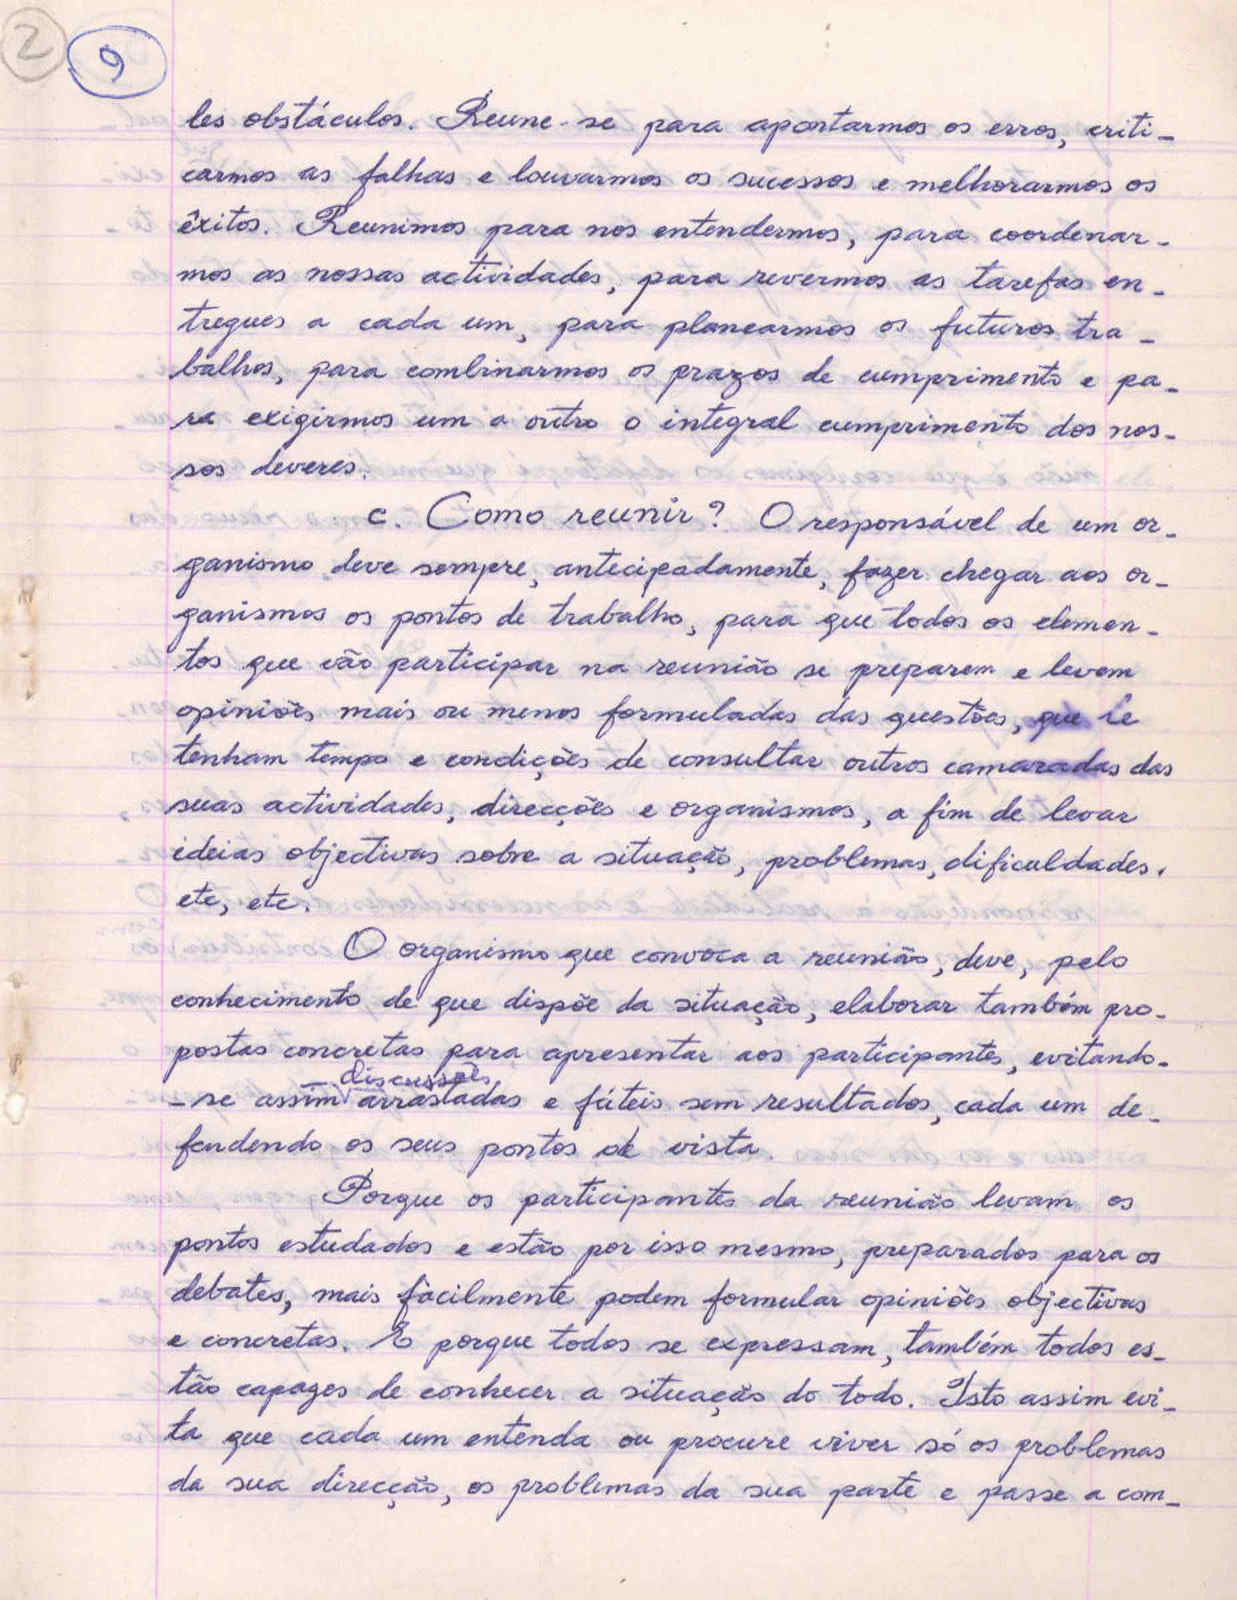 2
9
les obstáculos. Reune-se para apontarmos os erros, criti-
carmos as falhas e louvarmos os sucessos e melhorarmos os
êxitos. Reunimos para nos entendermos, para coordenar-
mos as nossas actividades, para revermos as tarefas en-
tregues a cada um, para planearmos os futuros tra-
balhos, para combinarmos os prazos de cumprimento e pa-
ra exigirmos um a outro o integral cumprimento dos nos-
sos deveres.
c. Como reunir? O responsável de um or-
ganismo deve sempre, antecipadamente, fazer chegar aos or-
ganismos os pontos de trabalho, para que todos os elemen-
tos que vão participar na reunião se preparem e levem
opiniões mais ou menos formuladas das questões, que se
tenham tempo e condições de consultar outros camaradas das
suas actividades, direcções e organismos, a fim de levar
ideias objectivas sobre a situação, problemas, dificuldades,
etc, etc.
O organismo que convoca a reunião, deve, pelo
conhecimento de que dispõe da situação, elaborar também pro-
postas concretas para apresentar aos participantes, evitando-
discussões
-se assim arrastadas e fúteis sem resultados, cada um de-
fendendo os seus pontos de vista.
Porque os participantes da reunião levam os
pontos estudados e estão por isso mesmo, preparados para os
debates, mais fàcilmente podem formular opiniões objectivas
e concretas. E porque todos se expressam, também todos es-
tão capazes de conhecer a situação do todo. Isto assim evi-
ta que cada um entenda ou procure viver só os problemas
da sua direcção, os problemas da sua parte e passe a com-